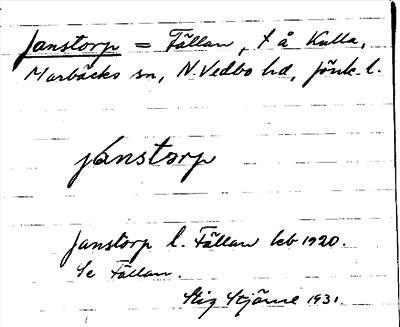 Janstorp = Fällan, t å Kulla,
Marbäcks sn, N. Vedbo hd, Jönk. l.
Janstorp
Janstorp l. Fällan leb 1920.
Se Fällan.
Stig Stjärne 1931.